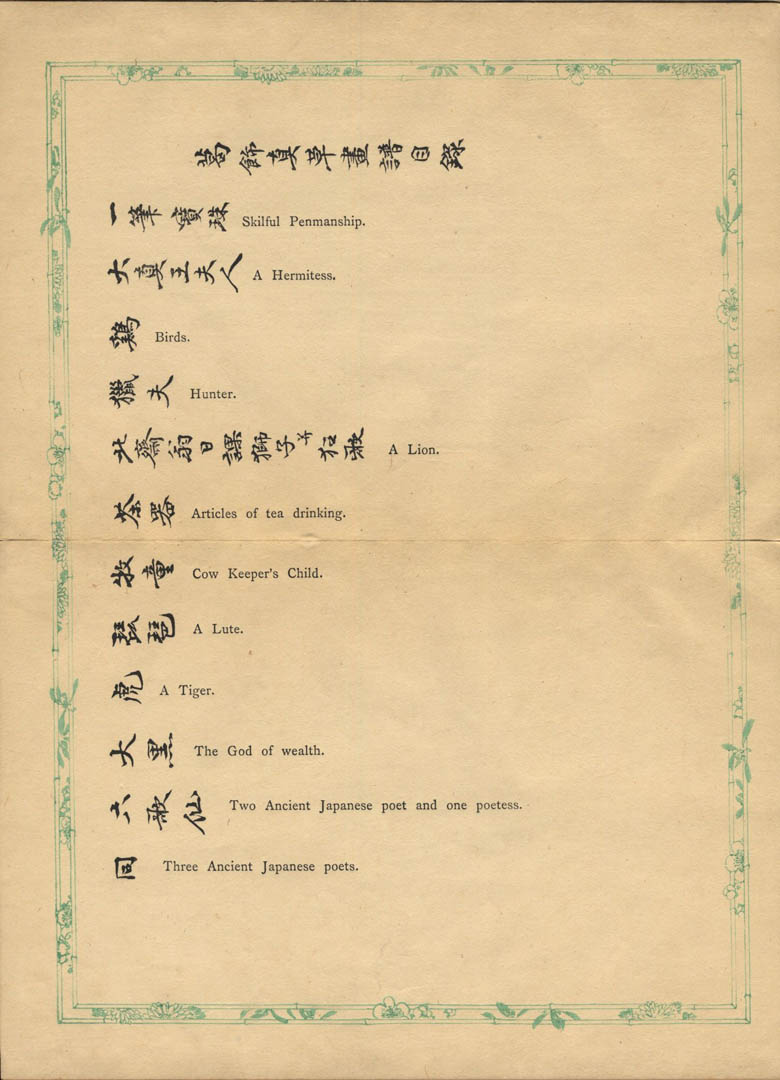 葛飾真草畫譜目錄
一筆寶珠 Skilful Penmanship.
大真王夫人 A Hermitess.
鶏 Birds.
獵夫 Hunter.
北齋翁日課獅子并狂歌 A Lion.
茶器 Articles of tea drinking.
牧童 Cow Keeper's Child.
琵琶 A Lute.
虎 A Tiger.
大黒 The God of wealth.
六歌仙 Two Ancient Japanese poet and one poetess.
同 Three Ancient Japanese poets.